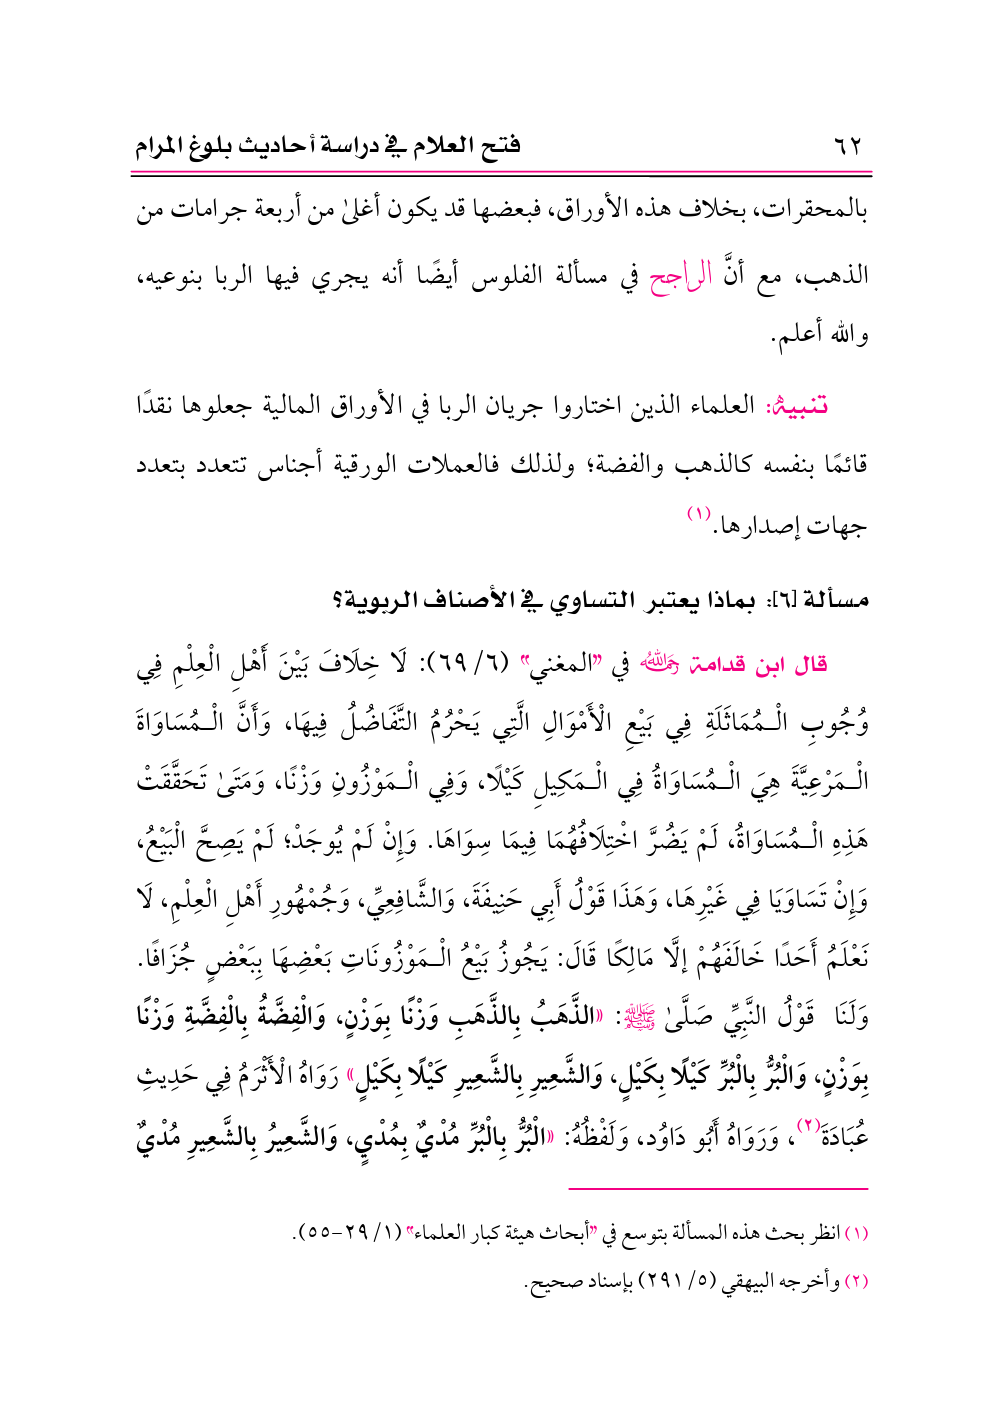 ٦٢ فتح العلام في دراسة أحاديث بلوغ المرام
بالمحقرات، بخلاف هذه الأوراق، فبعضها قد يكون أغلىٰ من أربعة جرامات من
الذهب، مع أنَّ الراجح في مسألة الفلوس أيضًا أنه يجري فيها الربا بنوعيه،
والله أعلم.
تنبيهٌ: العلماء الذين اختاروا جريان الربا في الأوراق المالية جعلوها نقدًا
قائمًا بنفسه كالذهب والفضة؛ ولذلك فالعملات الورقية أجناس تتعدد بتعدد
جهات إصدارها.(١)
مسألة [٦]: بماذا يعتبر التساوي في الأصناف الربوية؟
قال ابن قدامة رحمه الله في "المغني" (٦/ ٦٩): لَا خِلَافَ بَيْنَ أَهْلِ الْعِلْمِ فِي
وُجُوبِ الْـمُمَاثَلَةِ فِي بَيْعِ الْأَمْوَالِ الَّتِي يَحْرُمُ التَّفَاضُلُ فِيهَا، وَأَنَّ الْـمُسَاوَاةَ
الْـمَرْعِيَّةَ هِيَ الْـمُسَاوَاةُ فِي الْـمَكِيلِ كَيْلًا، وَفِي الْـمَوْزُونِ وَزْنًا، وَمَتَىٰ تَحَقَّقَتْ
هَذِهِ الْـمُسَاوَاةُ، لَمْ يَضُرَّ اخْتِلَافُهُمَا فِيمَا سِوَاهَا. وَإِنْ لَمْ يُوجَدْ؛ لَمْ يَصِحَّ الْبَيْعُ،
وَإِنْ تَسَاوَيَا فِي غَيْرِهَا، وَهَذَا قَوْلُ أَبِي حَنِيفَةَ، وَالشَّافِعِيِّ، وَجُمْهُورِ أَهْلِ الْعِلْمِ، لَا
نَعْلَمُ أَحَدًا خَالَفَهُمْ إلَّا مَالِكًا قَالَ: يَجُوزُ بَيْعُ الْـمَوْزُونَاتِ بَعْضِهَا بِبَعْضٍ جُزَافًا.
وَلَنَا قَوْلُ النَّبِيِّ صَلَّىٰ ﷺ: «الذَّهَبُ بِالذَّهَبِ وَزْنًا بِوَزْنٍ، وَالْفِضَّةُ بِالْفِضَّةِ وَزْنًا
بِوَزْنٍ، وَالْبُرُّ بِالْبُرِّ كَيْلًا بِكَيْلٍ، وَالشَّعِيرِ بِالشَّعِيرِ كَيْلًا بِكَيْلٍ» رَوَاهُ الْأَثْرَمُ فِي حَدِيثِ
عُبَادَةَ(٢)، وَرَوَاهُ أَبُو دَاوُد، وَلَفْظُهُ: «الْبُرُّ بِالْبُرِّ مُدْيٌ بِمُدْيٍ، وَالشَّعِيرُ بِالشَّعِيرِ مُدْيٌ
(١) انظر بحث هذه المسألة بتوسع في "أبحاث هيئة كبار العلماء" (١/ ٢٩-٥٥).
(٢) وأخرجه البيهقي (٥/ ٢٩١) بإسناد صحيح.